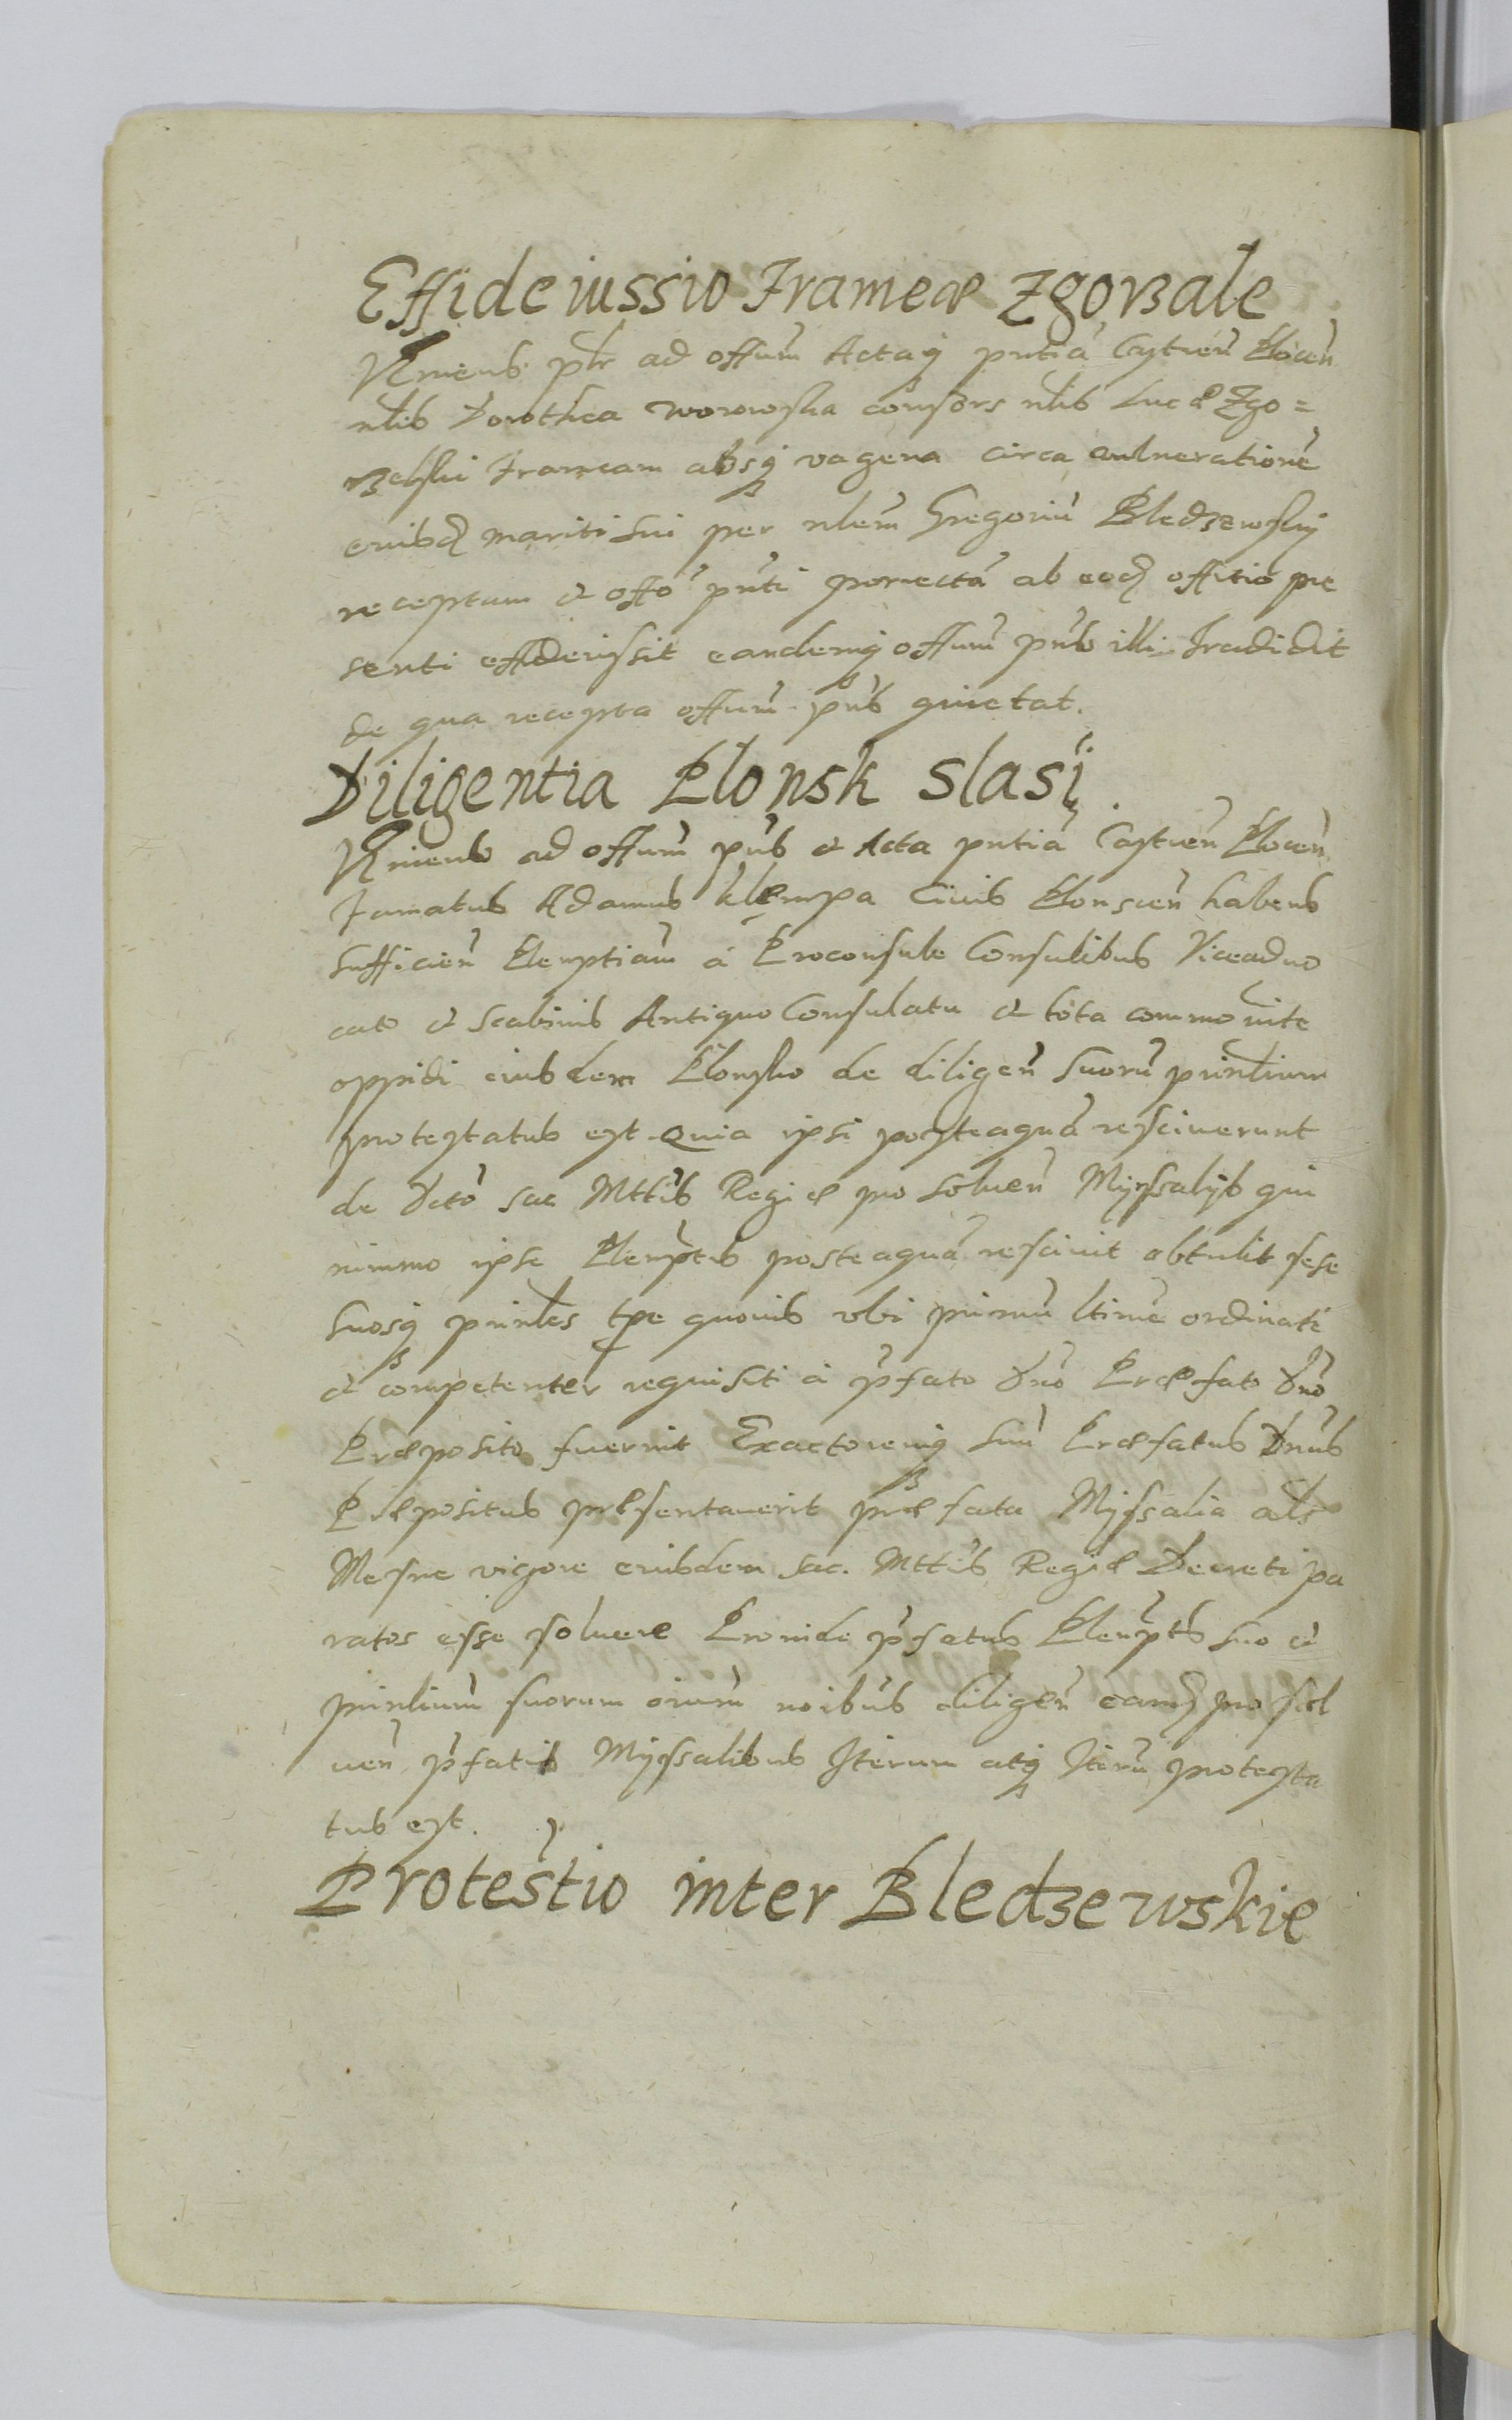 Effideiussio Frameæ Zgorzale
Veniens plr ad offum Actaq pntia Castren Plocen
nlis Dorothea Worowska consors nlis Lucæ Zgo=
rzelski Frameam absq vagena circa vulneratione
eiusd mariti sui per nlem Gregoriu Bledzewskij
receptam et offo pnti porrecta ab eod offitio pre
senti effideiussit eandemq offum pns illi tradidit
de qua recepta offum pns quietat.
Diligentia Plonsk slasi
Veniens ad offum pns et Acta pntia Castren Plocen
Famatus Adamus Klempa Ciuis Plonscen habens
sufficien Plenptiam a Proconsule Consulibus Viceaduo
cato et Scabinis Antiquo Consulatu et tota commonite
oppidi eiusdem Plonsko de diligen suoru prinlium
protestatus est Quia ipsi posteaqua resciuerunt
de Dcto sac Mttis Regiæ pro soluen Myssalijs qui
nimmo ipse Plenptus posteaqua resciuit obtulit sese
suosq prinles tpe quouis vbi primu ltime ordinati
et competenter requisiti a pfato Dno Præfato Dno
Præposito fuerint Exactoremq suu Præfatus Dnus
Præpositus præsentauerit præfata Myssalia als
Mesne vigore eiusdem sac. Mttis Regiæ Decreti pa
ratos esse soluere Proinde pfatus Plenptus suo et
prinlium suorum oium noibus diligen eand pro sol
uen pfatis Myssalibus Iterum atq Iteru protesta
tus est.
Protestio inter Bledzewskie